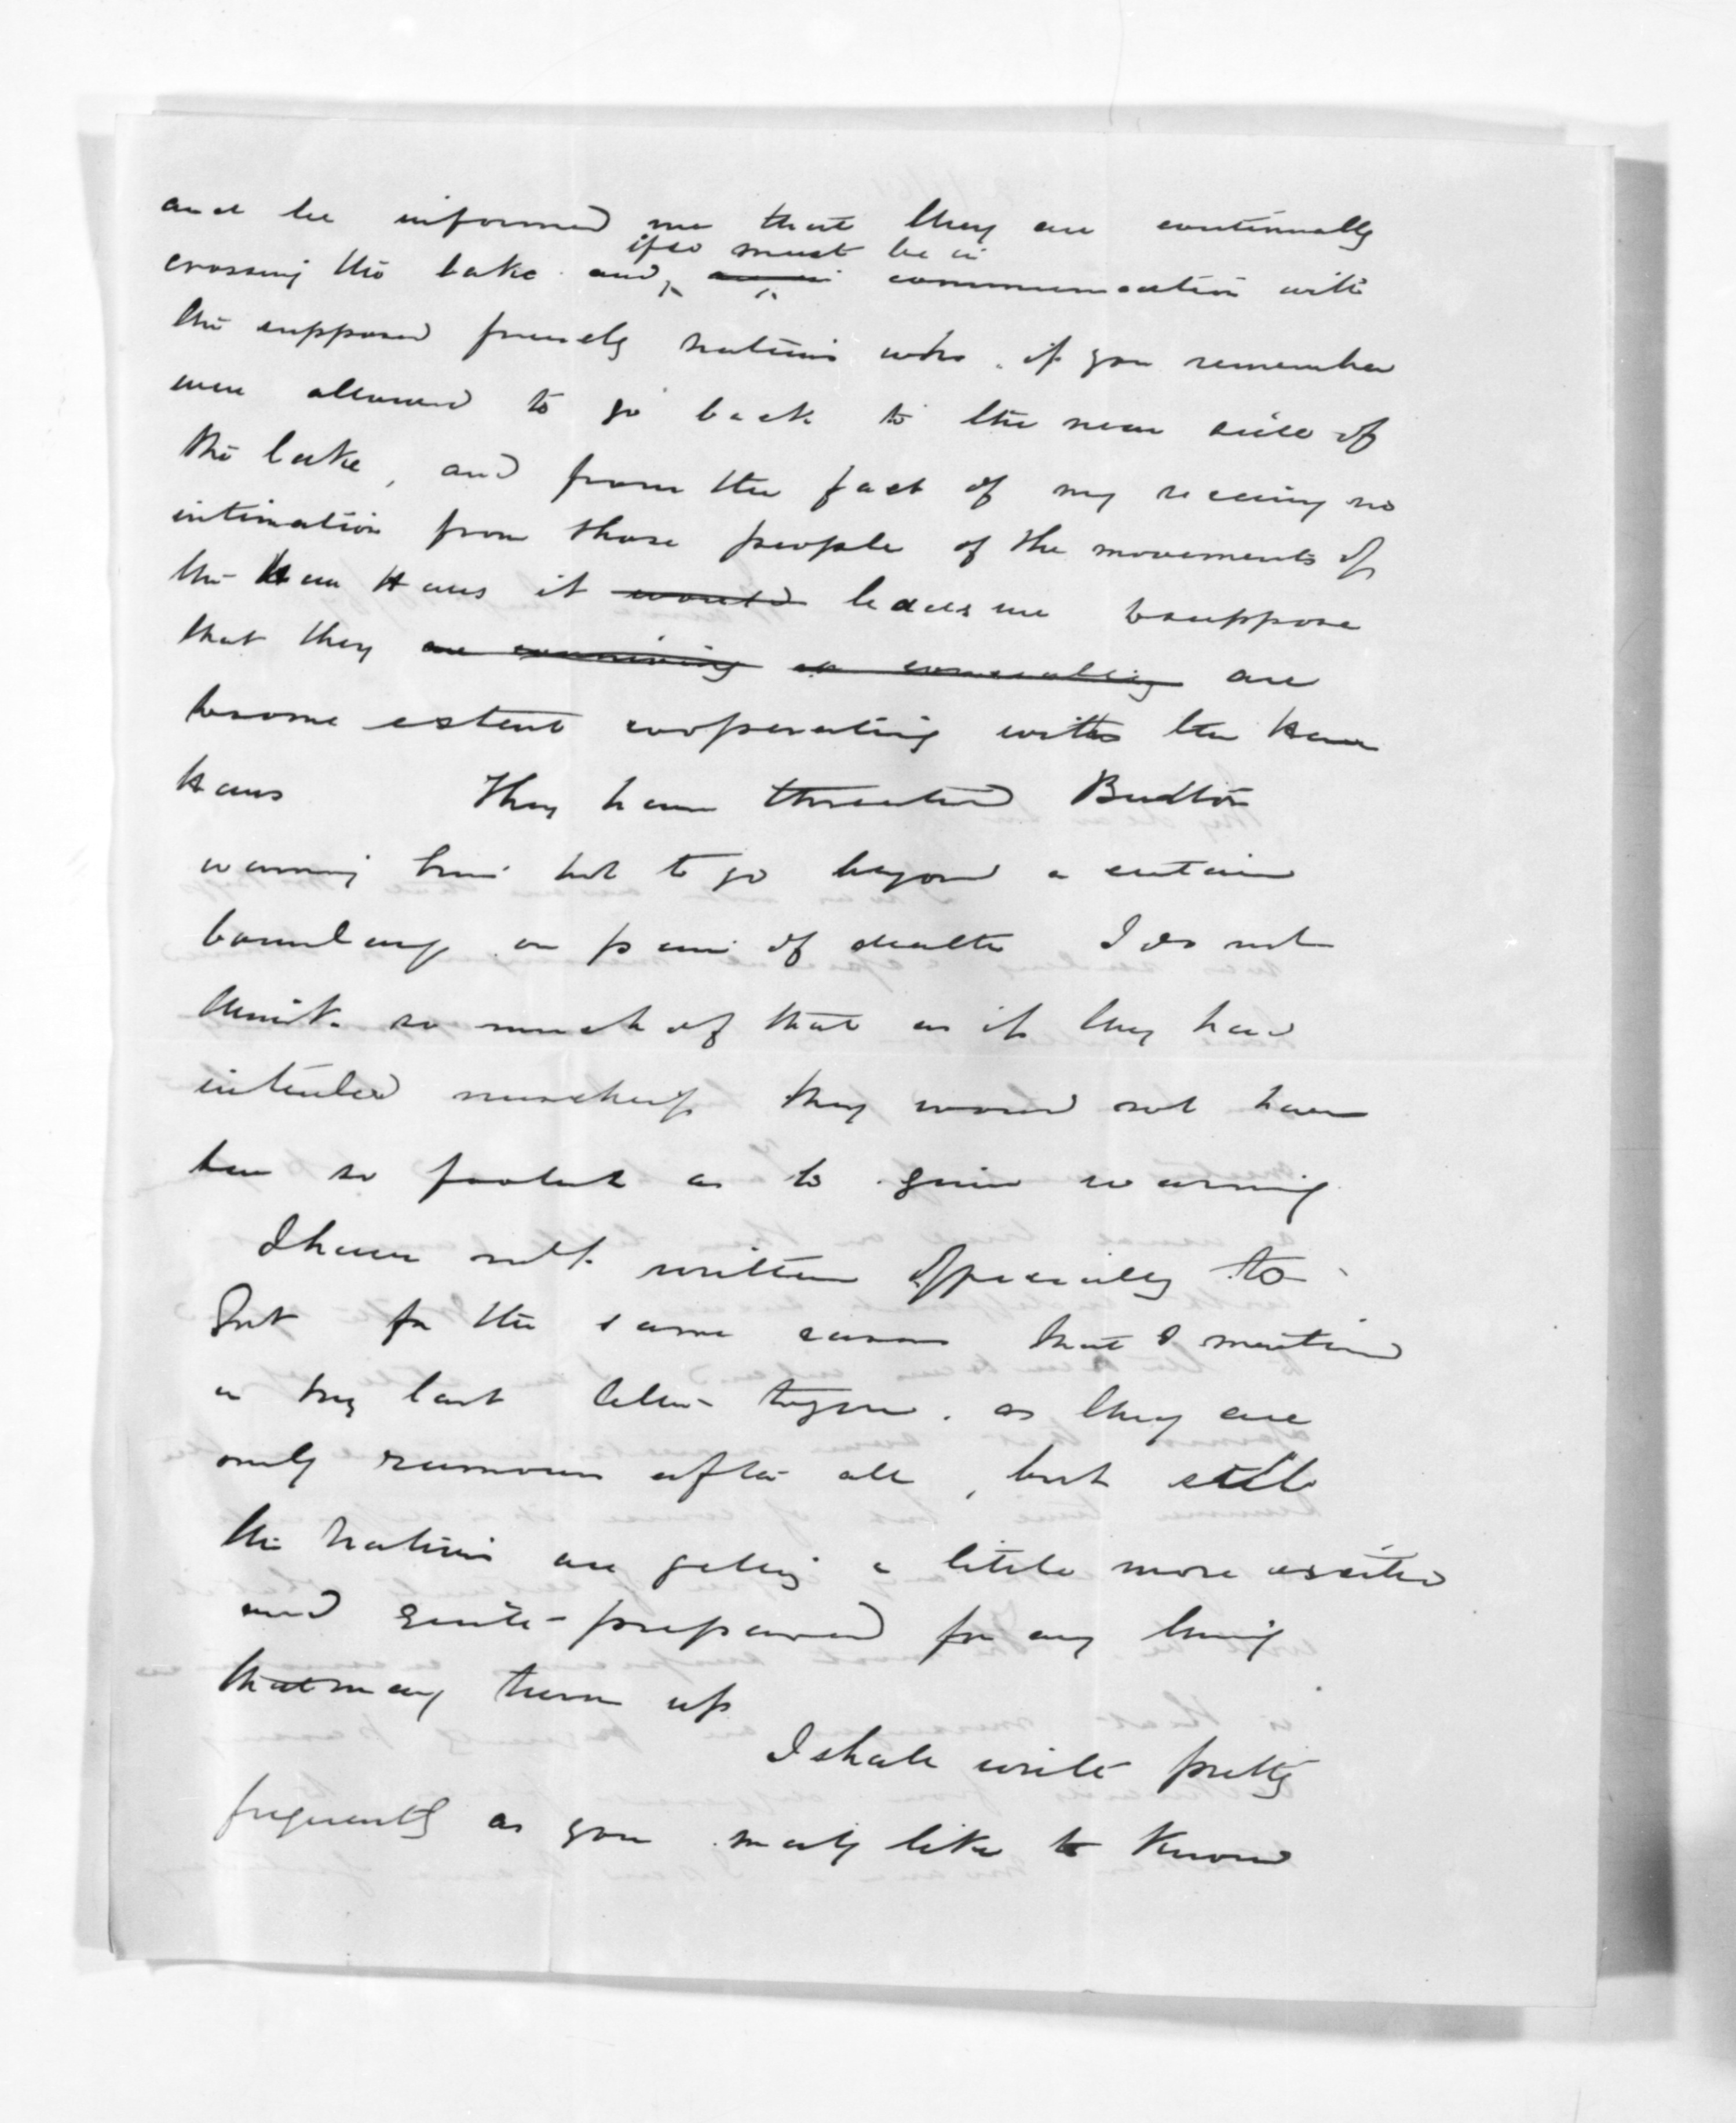 and he informed me that they are continually
if so must be in
crossing the lake and communication with
the supposed friendly natives who, if you remember
were allowed to go back to the near side of
the lake, and from the fact of my receiving no
intimation from those people of the movements of
the Hau Haus it would leads me to suppose
that they are conniving or concealing are
to some extent cooperating with the Hau
Haus They have threatened
warning him not to go beyond a certain
boundary on pain of death I do not
think so much of that as if they had
intended mischief they would not have
been so foolish as to give warning
I have not written specially to
Govt for the same reason that I mention
in my last letter to you. as they are
only rumours after all, but still
the natives are getting a little more excited
and quite prepared for any thing
that may turn up
I shall write pretty
frequently as you may like to know